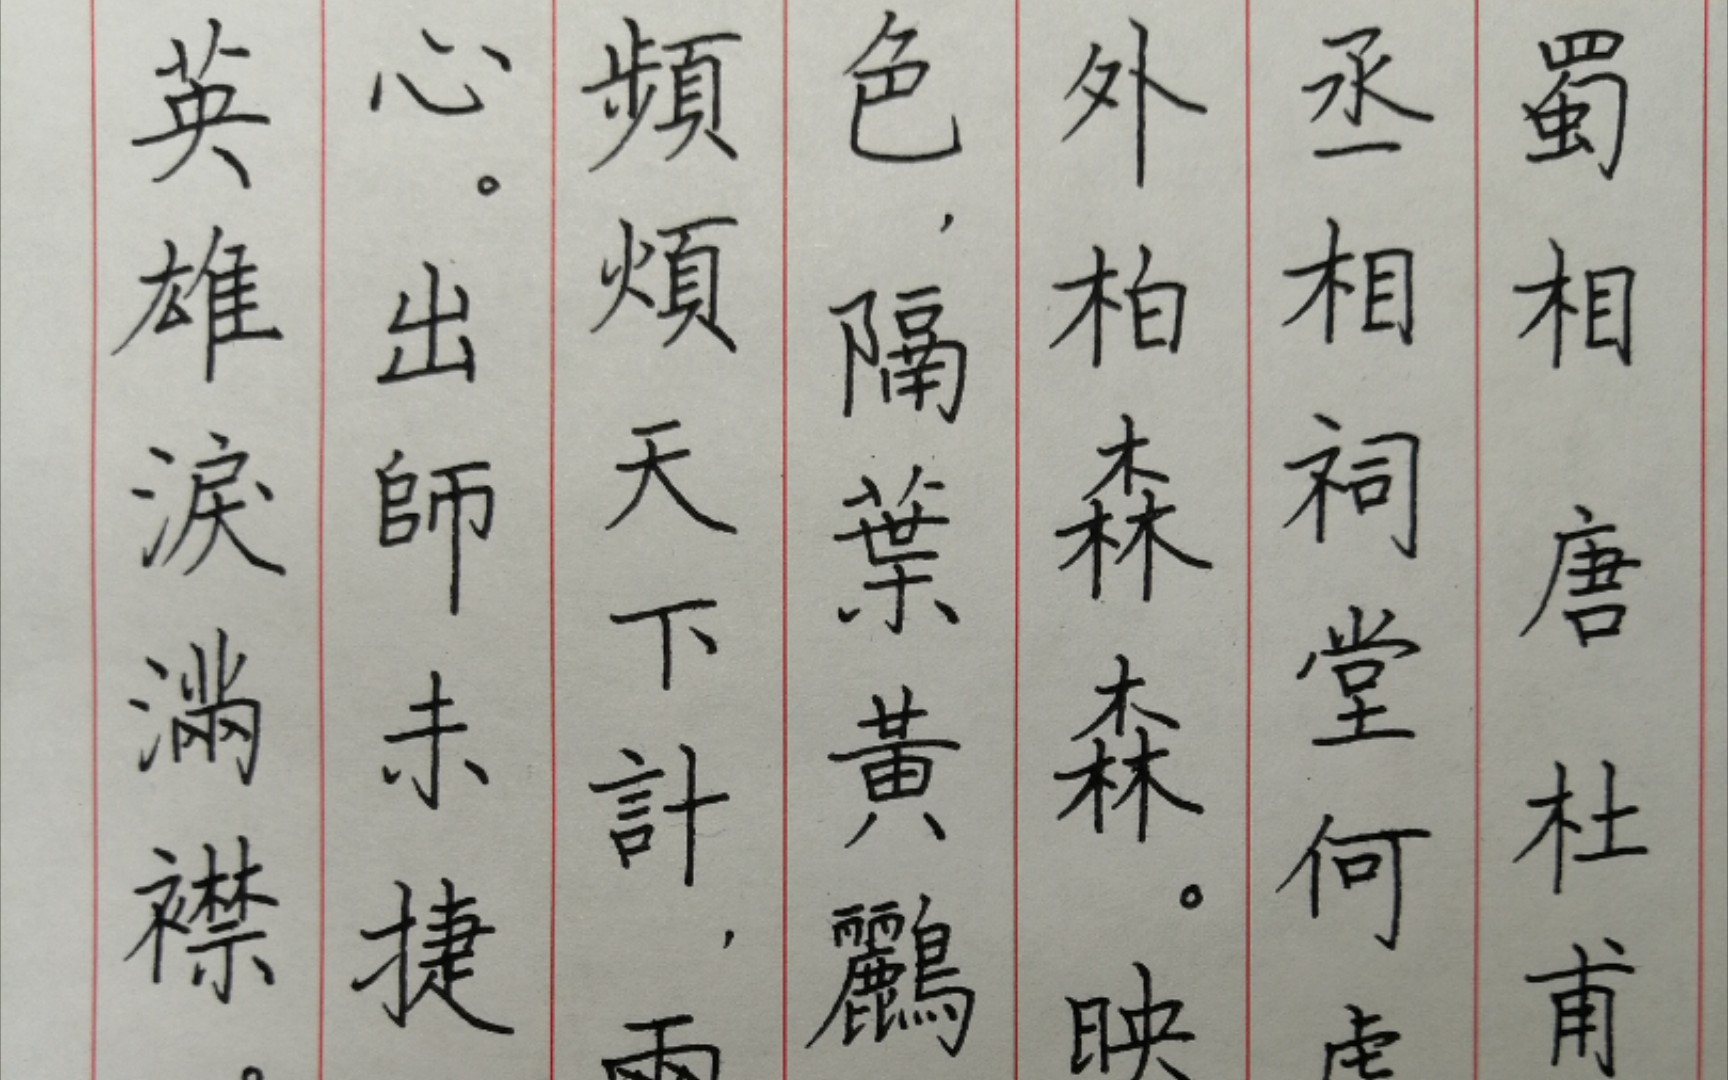 蜀相 唐 杜甫
丞相祠堂何處
外柏森森。映
色，隔葉黃鸝
頻煩天下計，兩
心。出師未捷
英雄淚滿襟。